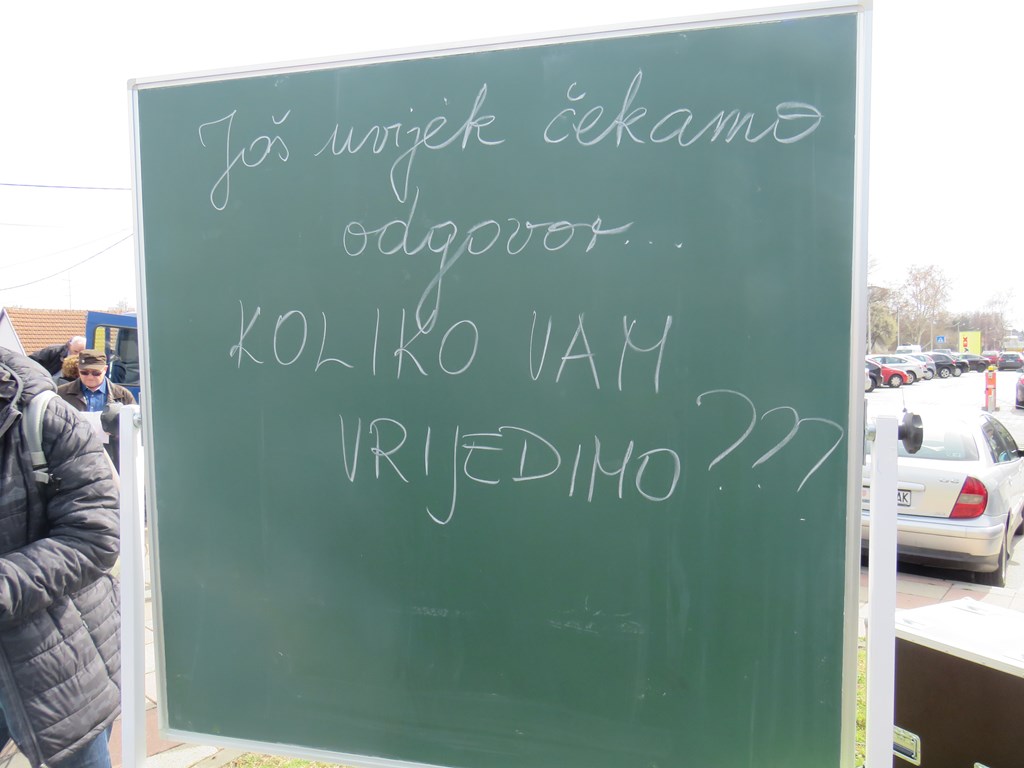 Još uvijek čekamo
odgovor...
KOLIKO VAM
VRIJEDIMO???
AK